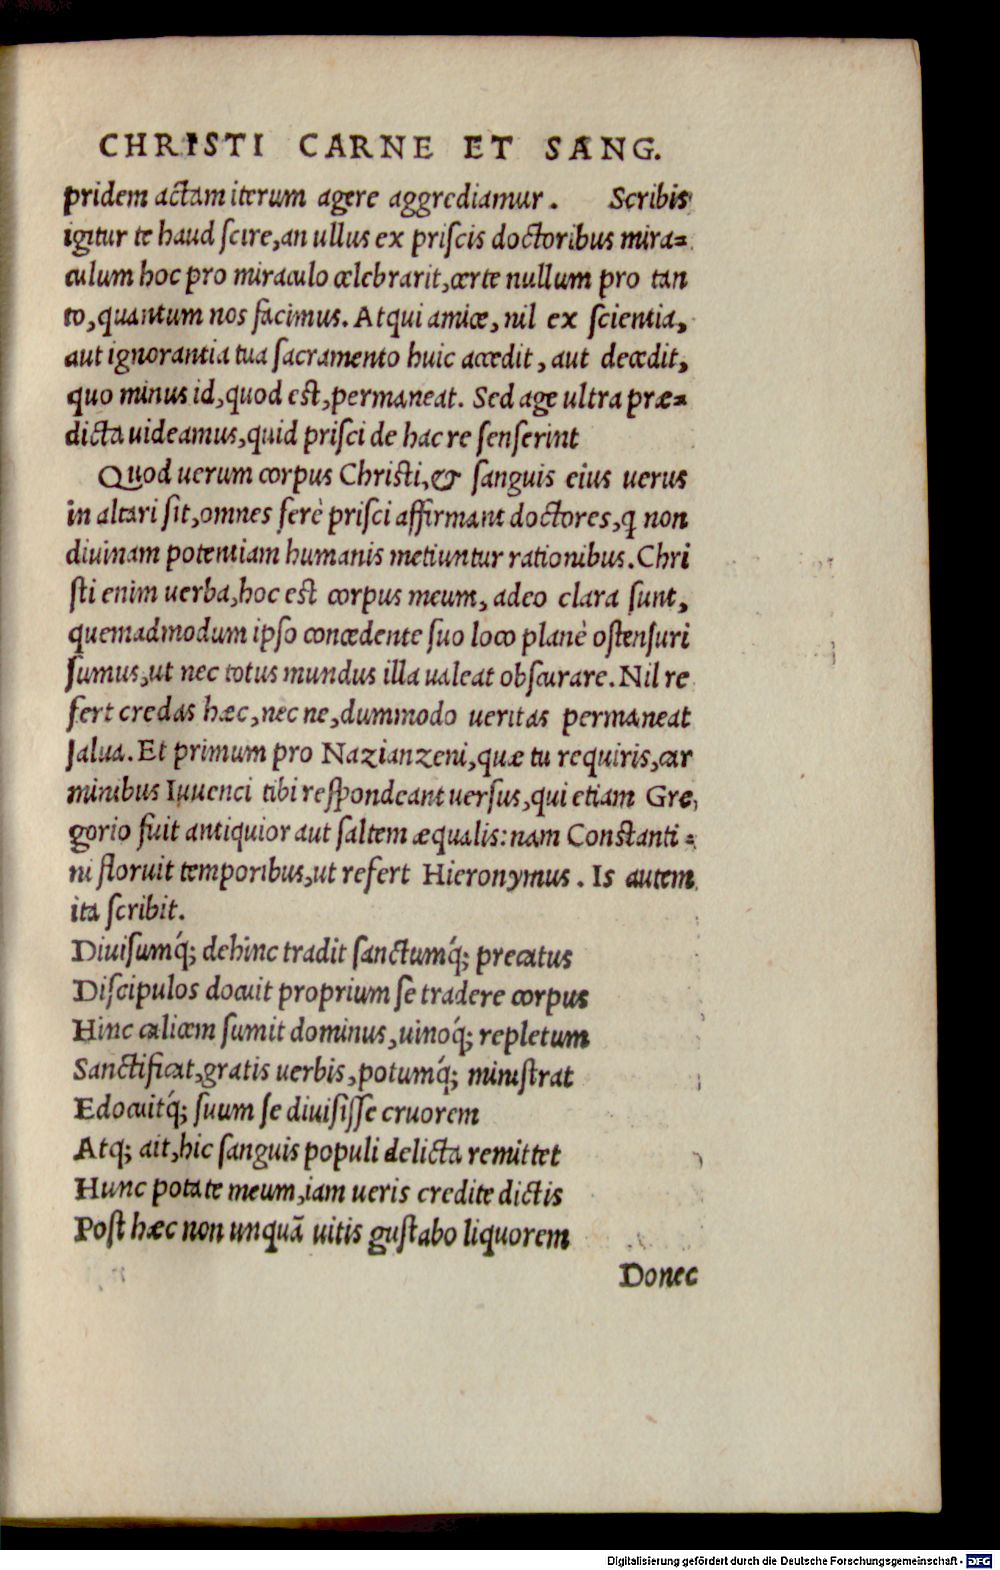 CHRISTI CARNE ET SANG.
pridem actam iterum agere aggrediamur. Scribis
igitur te haud scire, an ullus ex priscis doctoribus mira=
culum hoc pro miraculo celebrarit, certe nullum pro tan
to, quantum nos facimus. Atqui amice, nil ex scientia,
aut ignorantia tua sacramento huic accedit, aut decedit,
quo minus id, quod est, permaneat. Sed age ultra præ=
dicta uideamus, quid prisci de hac re senserint
Quod uerum corpus Christi, & sanguis eius uerus
in altari sit, omnes ferè prisci affirmant doctores, q non
diuinam potentiam humanis metiuntur rationibus. Chri
sti enim uerba, hoc est corpus meum, adeo clara sunt,
quemadmodum ipso concedente suo loco planè ostensuri
sumus, ut nec totus mundus illa ualeat obscurare. Nil re
fert credas hæc, nec ne, dummodo ueritas permaneat
salua. Et primum pro Nazianzeni, quæ tu requiris, car
minibus Iuuenci tibi respondeant uersus, qui etiam Gre,
gorio fuit antiquior aut saltem æqualis: nam Constanti=
ni floruit temporibus, ut refert Hieronymus. Is autem
ita scribit.
Diuisumq́; dehinc tradit sanctumq́; precatus
Discipulos docuit proprium se tradere corpus
Hinc calicem sumit dominus, uinoq́; repletum
Sanctificat, gratis uerbis, potumq́; ministrat
Edocuitq́; suum se diuisisse cruorem
Atq; ait, hic sanguis populi delicta remittet
Hunc potate meum, iam ueris credite dictis
Post hæc non unquā uitis gustabo liquorem
Donec
Digitalisierung gefördert durch die Deutsche Forschungsgemeinschaft - DFG